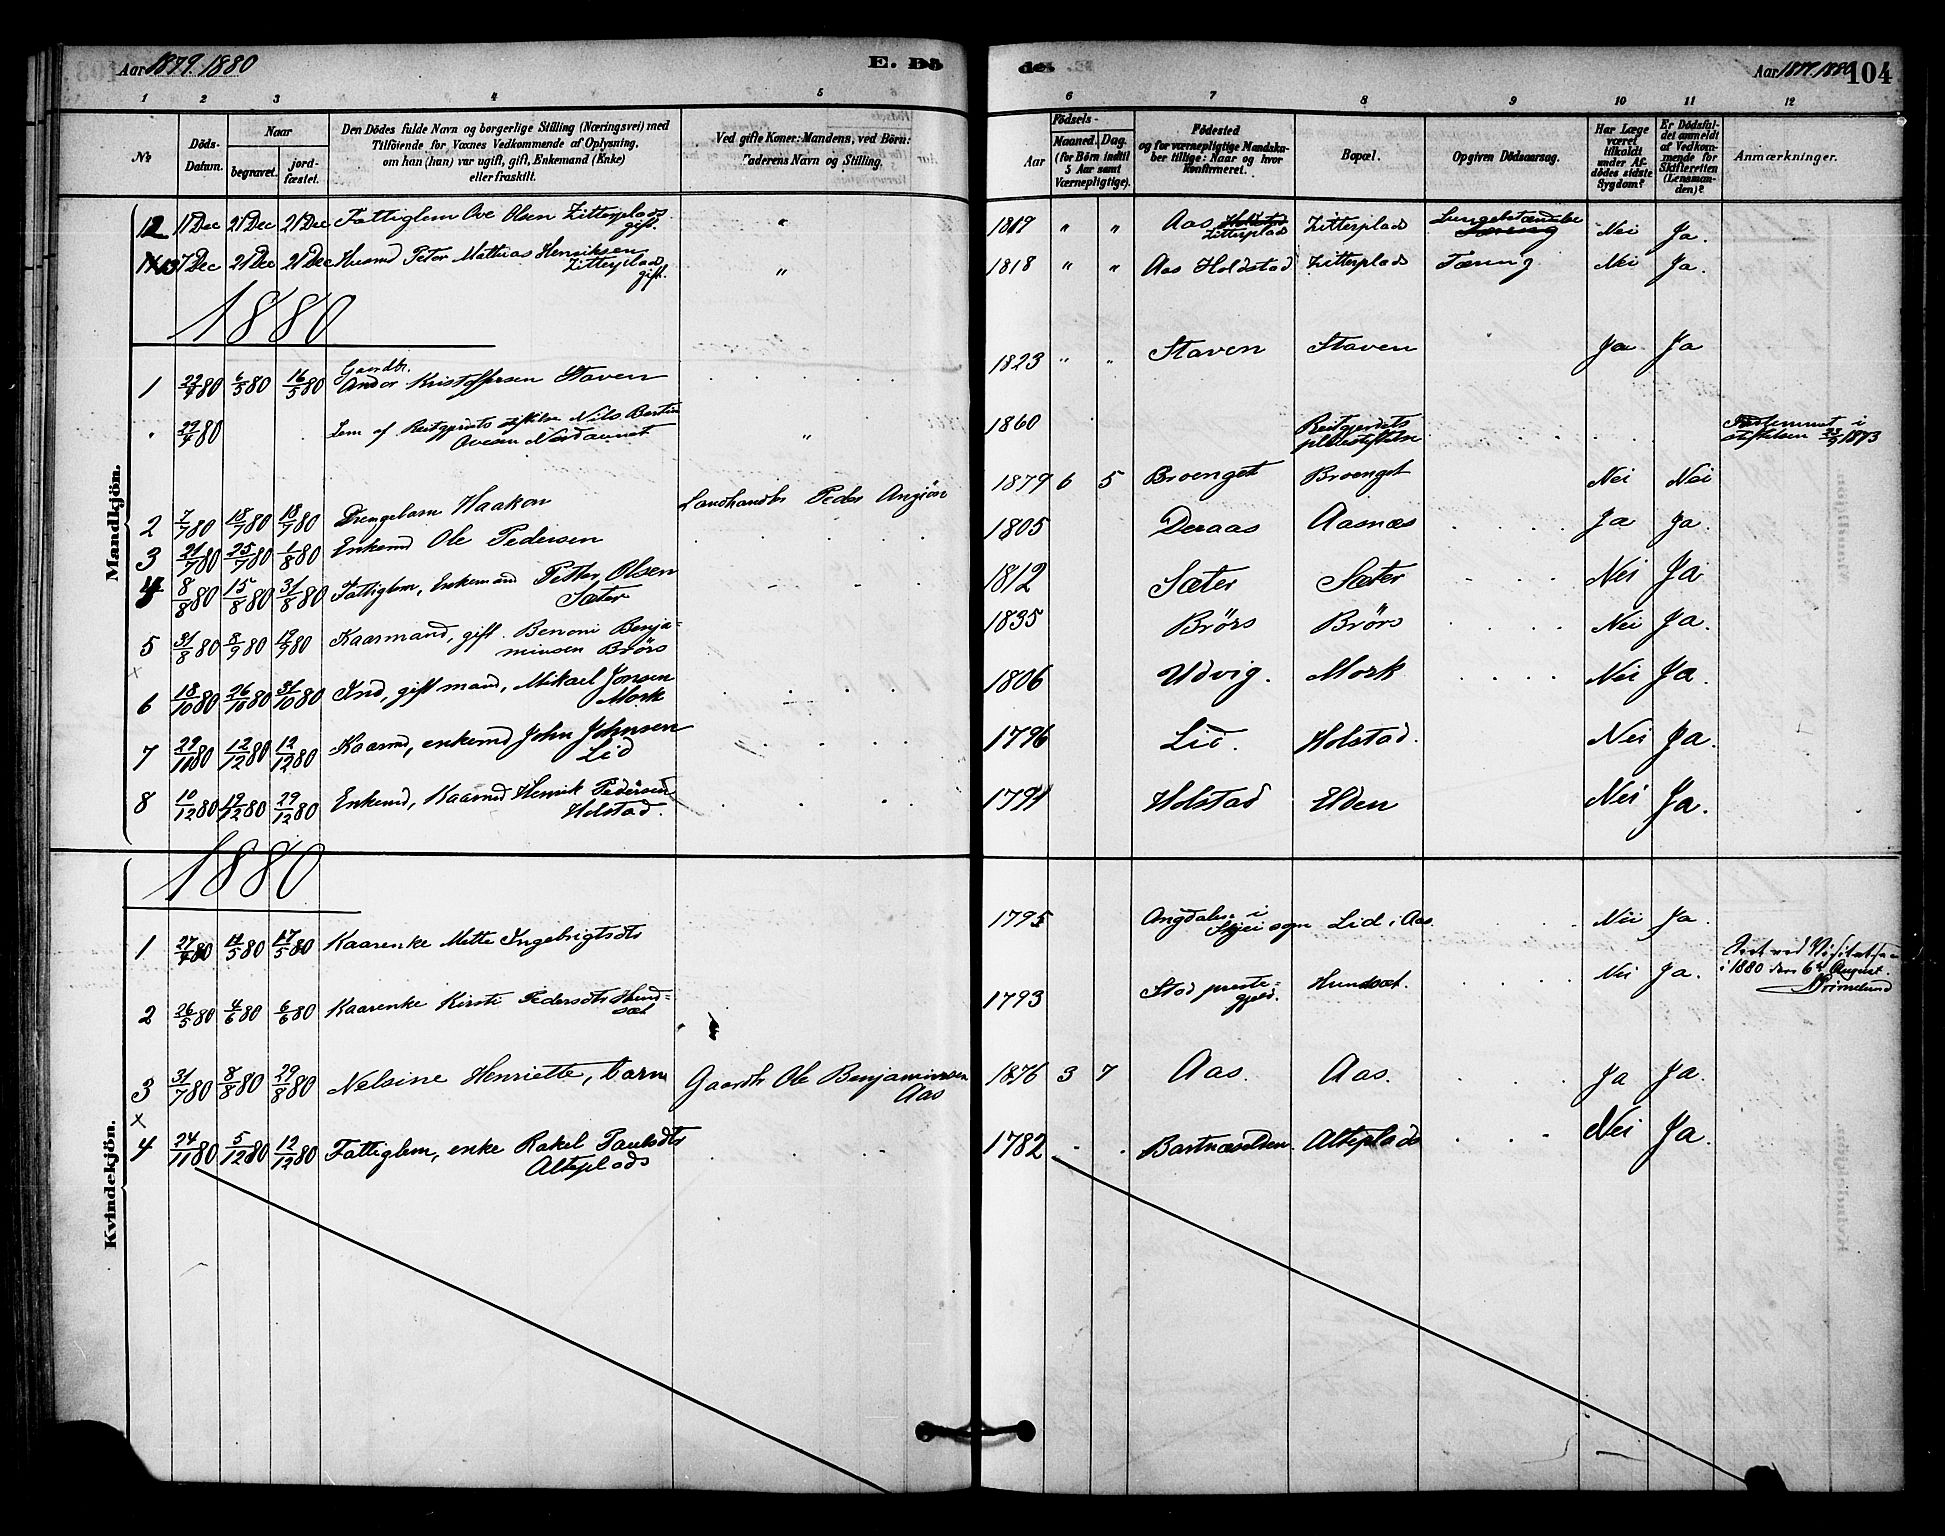 Aar 1879. 1880 E. Dö
de. Aar 1879. 1880 104
1 2 3 4 5 6 7 8 9 10 11 12
No
Döds-
Datum.
Naar
begravet.
jord-
fæstet.
Den Dödes fulde Navn og borgerlige Stilling (Næringsvei) med
Tilföiende for Voxnes Vedkommende af Oplysning,
om han (hun) var ugift, gift, Enkemand (Enke)
eller fraskilt.
Ved gifte Koner: Mandens, ved Börn:
Faderens Navn og Stilling.
Födsels-
Aar
Maaned. Dag.
(for Börn indtil
5 Aar samt
Værnepligtige).
Födested
og for værnepligtige Mandska-
ber tillige: Naar og hvor
Konfirmeret.
Bopæl.
Opgiven Dödsaarsag.
Har Læge
været
tilkaldt
under Af-
dödes sidste
Sygdom?
Er Dödsfal-
det anmeldt
af Vedkom-
mende for
Skifteretten
(Lensman-
den)?
Anmærkninger.
Mandkjön.
12 Dec 21 Dec 21 Dec Fattiglem Ove Olsen Zitterplads gift. " 1819 " " Aas Zitterplads Zitterplads Nei Ja.
Dec 21 Dec 21 Dec Husmd Peter Mathias Henriksen Zitterplads gift. " 1818 " " Aas Holdstad Zitterplads Tæring Nei Ja
1880
1 6/5 80 16/5 80 Gaardbr. Andor Kristoffersen Staven 1823 " " Staven Staven Ja Ja
29/4 80 Lem af Reitgjerdets stiftelse Nils Bertin Nordavnet " 1860 Reitgjerdets pleiestiftelse Indlemmet i stiftelsen 1873
2 7/7 80 18/7 80 18/7 80 Drengebarn Haakon Landhandler Peder 1879 6 5 Broenget Broenget Nei Nei
3 21/7 80 25/7 80 1/8 80 Enkemd Ole Pedersen 1805 Deraas Aasnæs Ja Ja.
4 8/8 80 15/8 80 31/8 80 Fattiglem, Enkemand Petter Olsen Sæter 1812 Sæter Sæter Nei Ja
5 31/8 80 8/9 80 19/9 80 Kaarmand, gift. Benoni Benja-
minsen Brörs 1835 Brörs Brörs Nei Ja.
x
6 18/10 80 26/10 80 31/10 80 Ind, gift mand, Mikael Jonsen Mork 1806 Udvig. Mork Nei Ja.
7 29/11 80 12/12 80 12/12 80 Kaarmd, enkemd John Johnsen Lid 1796 Lid. Holstad. Nei Ja.
8 10/12 80 19/12 80 29/12 80 Enkemd, Kaarmd Henrik Pedersen Holstad. 1791 Holstad Elden Nei Ja.
Kvindekjön.
1880
1 27/4 80 17/5 80 Kaarenke Mette Ingebrigtsdtr 1795 Lid i Aas Nei Ja.
2 26/5 80 4/6 80 6/6 80 Kaarenke Kirsti Pedersdtr Hund-
sæt 1793 Stod preste-
gjeld. Hundsæt. Nei Ja. ved
i 1880 den 6te August.
3 31/7 80 8/8 80 29/8 80 Nelsine Henriette, barn Gaardb. Ole Benjaminsen Aas 1876 3 7 Aas. Aas. Ja Ja.
x
4 24/11 80 5/12 80 12/12 80 Fattiglem, enke Rakel Paulsdtr Alteplads 1782 Bartnæselden Alteplads Nei Ja.